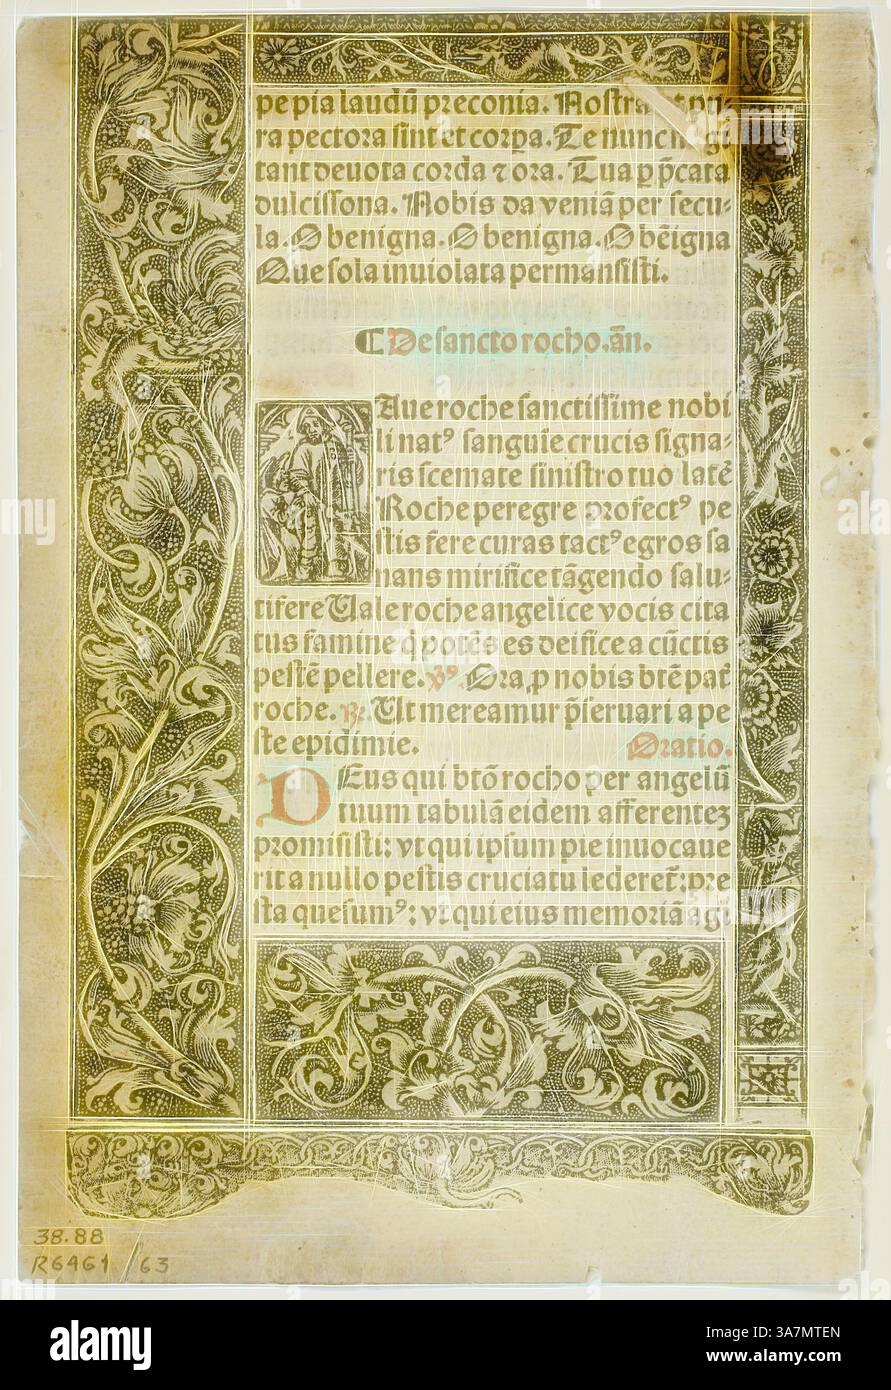 pe pia laudū preconia. Nostra ut pu-
ra pectora sint et corpa. Te nunc
tant deuota corda ⁊ ora. Tua p p̄cata
dulcissona. Nobis da veniā per secu-
la. O benigna. O benigna. O bēigna
Que sola inuiolata permansisti.
⸿ De sancto rocho. añ.
Aue roche sanctissime nobi
li natꝰ sanguie crucis signa-
ris scemate sinistro tuo latē
Roche peregre profectꝰ pe
stis fere curas tactꝰ egros sa
nans mirifice tāgendo salu-
tifere Uale roche angelice vocis cita
tus famine q̇ potēs es deifice a cūctis
pestē pellere. ℣. Ora ꝓ nobis btē pat̄
roche. ℟. Ut mereamur p̄seruari a pe
ste epidimie. Oratio.
DEus qui btō rocho per angelū
tuum tabulā eidem afferentez
promisisti: vt qui ipsum pie inuocaue
rit a nullo pestis cruciatu lederet̄: pre
sta quesumꝰ: vt qui eius memoriā agi
38.88
R6461/63
alamy
Image ID: 3A7MTEN
www.alamy.com